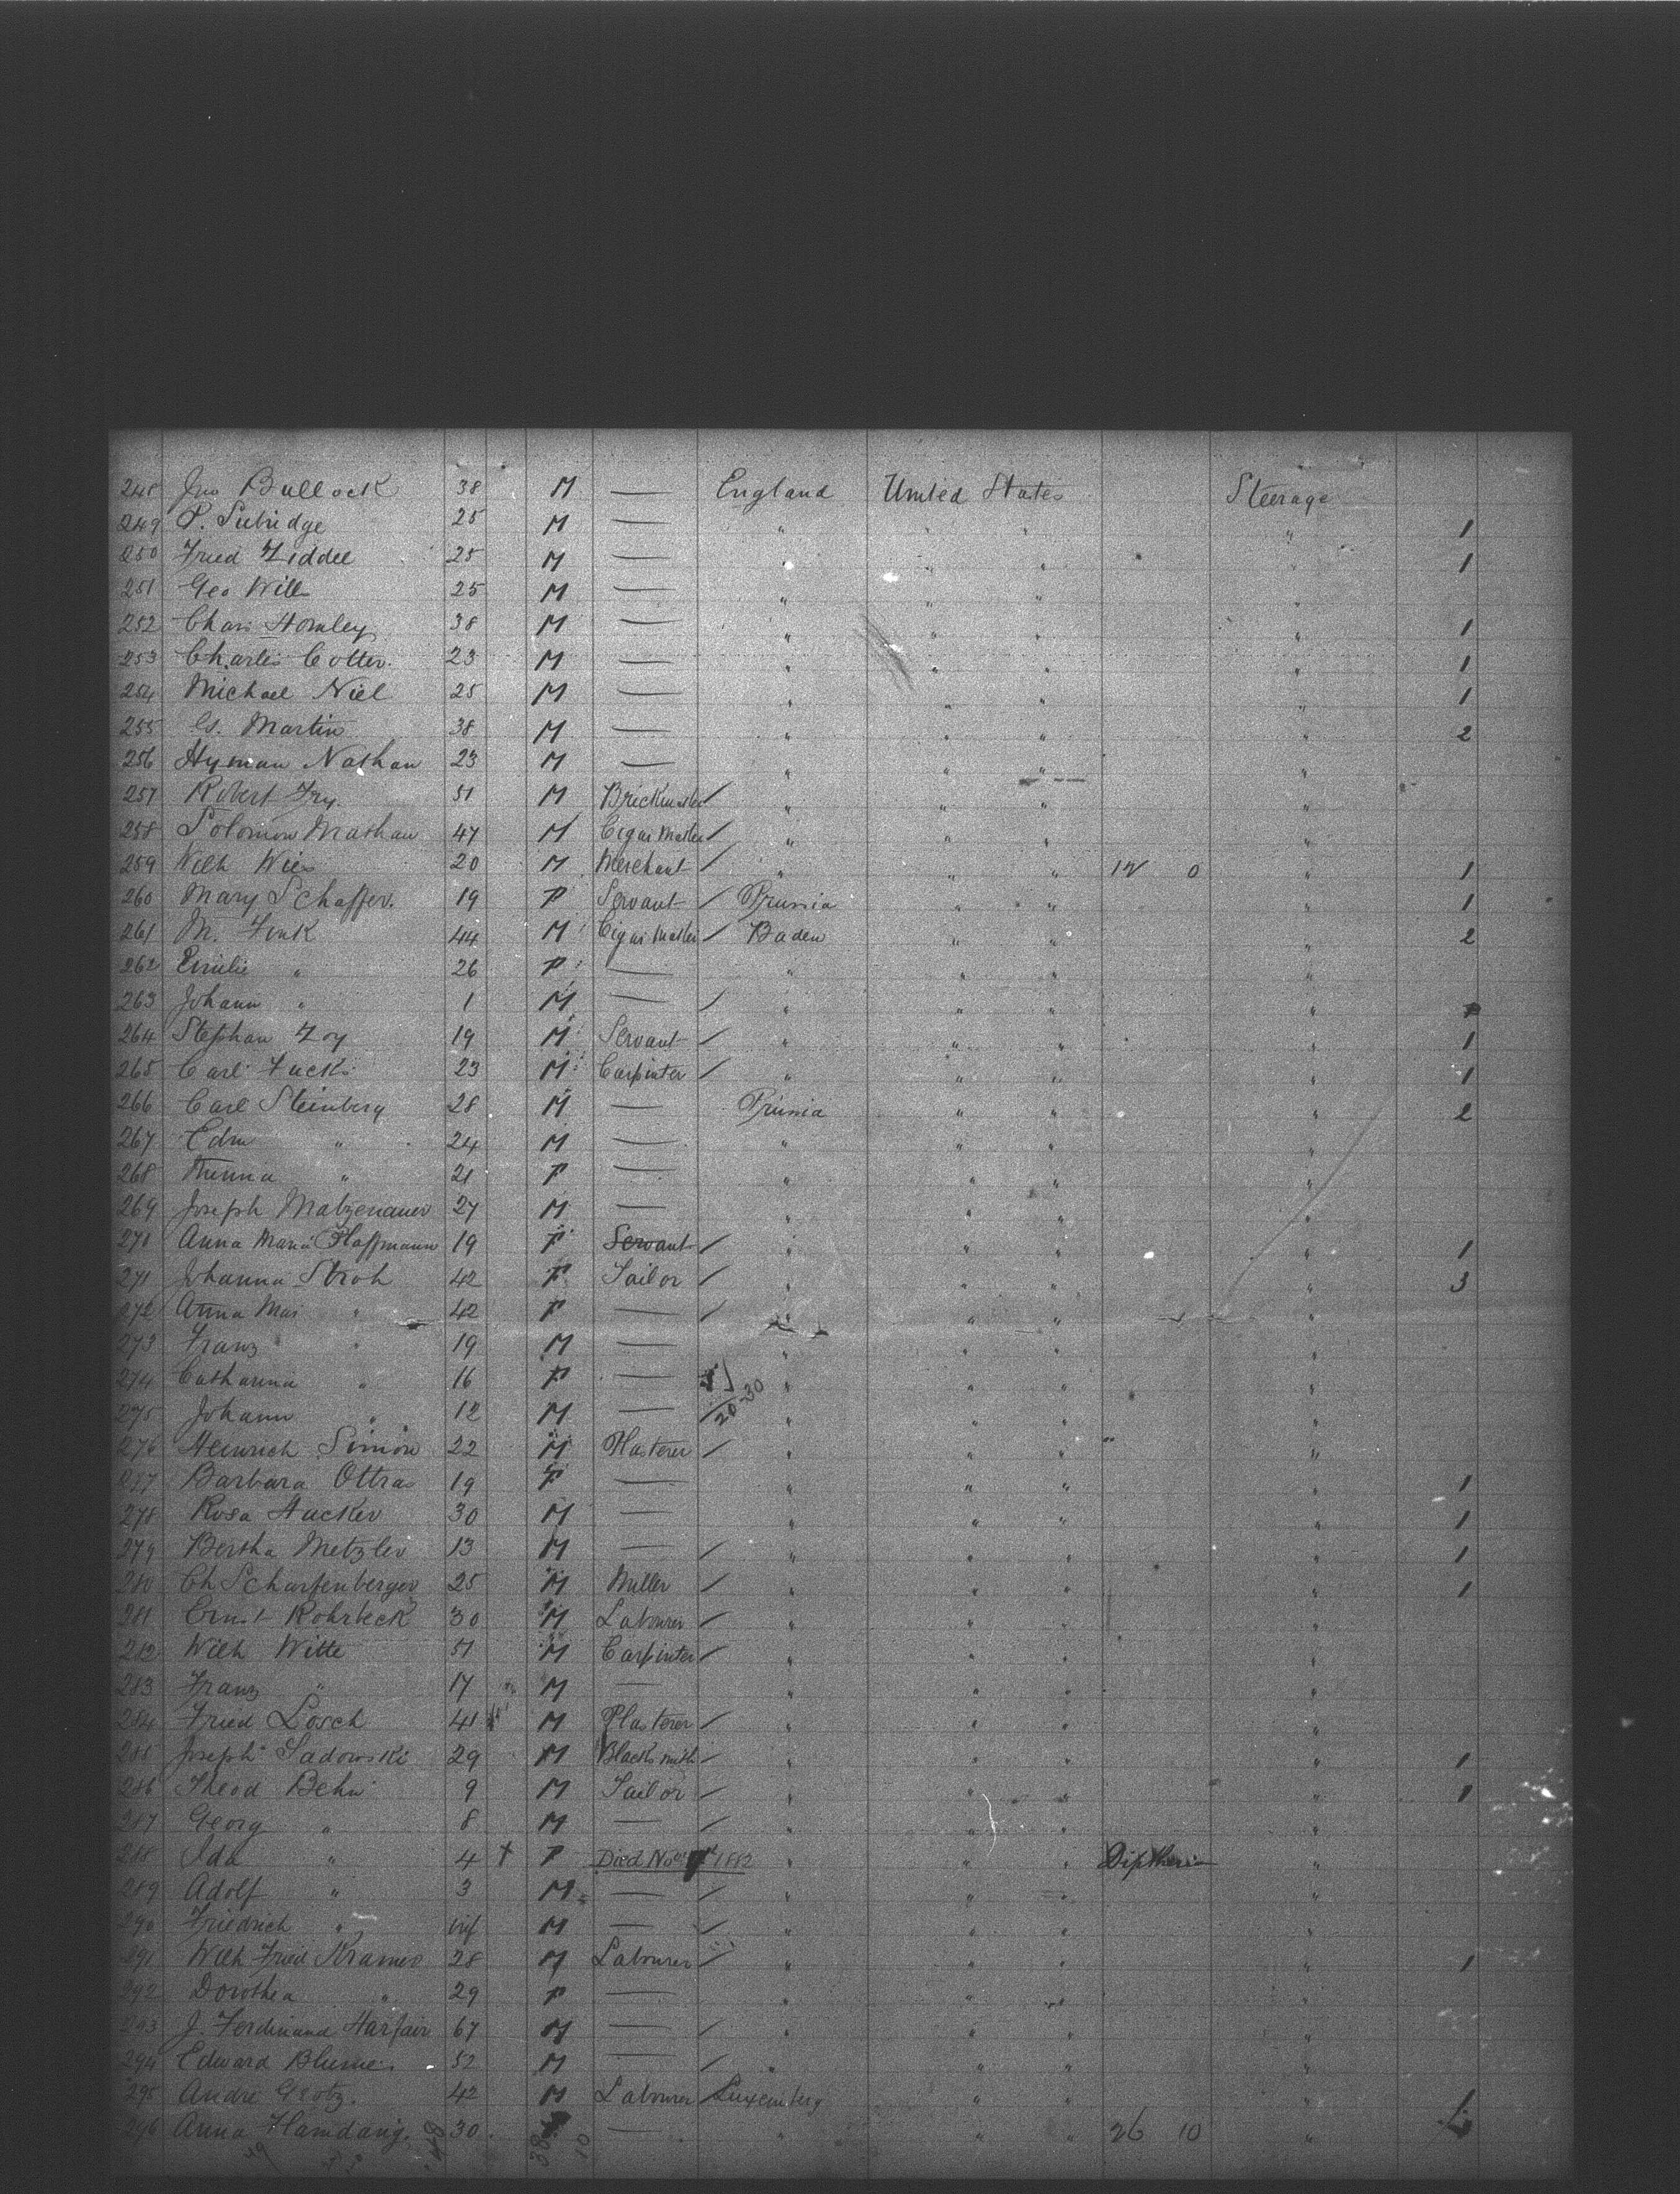 248 Jno Bullock 38 M — England United States Steerage
249 P. Sutridge 25 M — " " " " 1
250 Fried Liddel 25 M — " " " " 1
251 Geo Will 25 M — " " " "
252 Chas Homley 38 M — " " " " 1
253 Charles Cotter. 23 M — " " " " 1
254 Michael Niel 25 M — " " " " 1
255 Martin 38 M — " " " " 2
256 Hyman Nathan 23 M — " " " "
257 Robert Fry. 51 M / " " " "
258 Solomon Nathan 47 M Cigar Maker / " " " "
259 Wilh Wies 20 M Merchant / " " " 12 0 " 1
260 Mary Schaffer. 19 F Servant / Prussia " " " 1
261 M. Fink 44 M Cigar Maker / Baden " " " 2
262 Emilie " 26 F — " " " "
263 Johann " 1 M — / " " " "
264 Stephan Foy 19 M Servant / " " " " 1
265 Carl Fucks 23 M Carpinter / " " " " 1
266 Carl Steinberg 28 M — Prussia " " " 2
267 Edm " 24 M — " " " "
268 " 21 F — " " " "
269 Joseph Matzenauer 27 M — " " " "
270 Anna Maria Hoffmann 19 F Servant / " " " " 1
271 Johanna Stroh 42 F Tailor / " " " " 3
272 Anna Mar " 42 F — / " " " "
273 Franz " 19 M — " " " "
274 Catharina " 16 F — " " " "
275 Johann " 12 M — 20-30 " " " "
276 Heinrich Simon 22 M Plasterer / " " " "
277 Barbara Ottras 19 F — " " " " 1
278 Rosa Hucker 30 M — " " " " 1
279 Bertha Metzler 13 M — / " " " " 1
280 Ch Scharfenberger 25 M Miller / " " " " 1
281 Ernst Rohrbeck 30 M Labourer / " " " "
282 Wilh Witte 51 M Carpinter / " " " "
283 Franz " 17 M — " " " "
284 Fried Losch 41 M Plasterer / " " " "
285 Joseph Sadowski 29 M Blacksmith / " " " " 1
286 Theod Behn 9 M Tailor / " " " " 1
287 Georg " 8 M — / " " " "
288 Ida " 4 + F Died Nov 1882 " " " Diptheria "
289 Adolf " 3 M — / " " " "
290 Friedrich " inf M — / " " " "
291 Wilh Fried Kramer 28 M Labourer / " " " " 1
292 Dorothea " 29 F — " " " "
293 J. Ferdinand Harfair 67 M — / " " " "
294 Edward Blume 52 M — / " " " "
295 Andre Grotz. 42 M Labourer Luxemberg " " " 1
296 Anna Hamdang. 30 — " " " 26 10 "
38 10